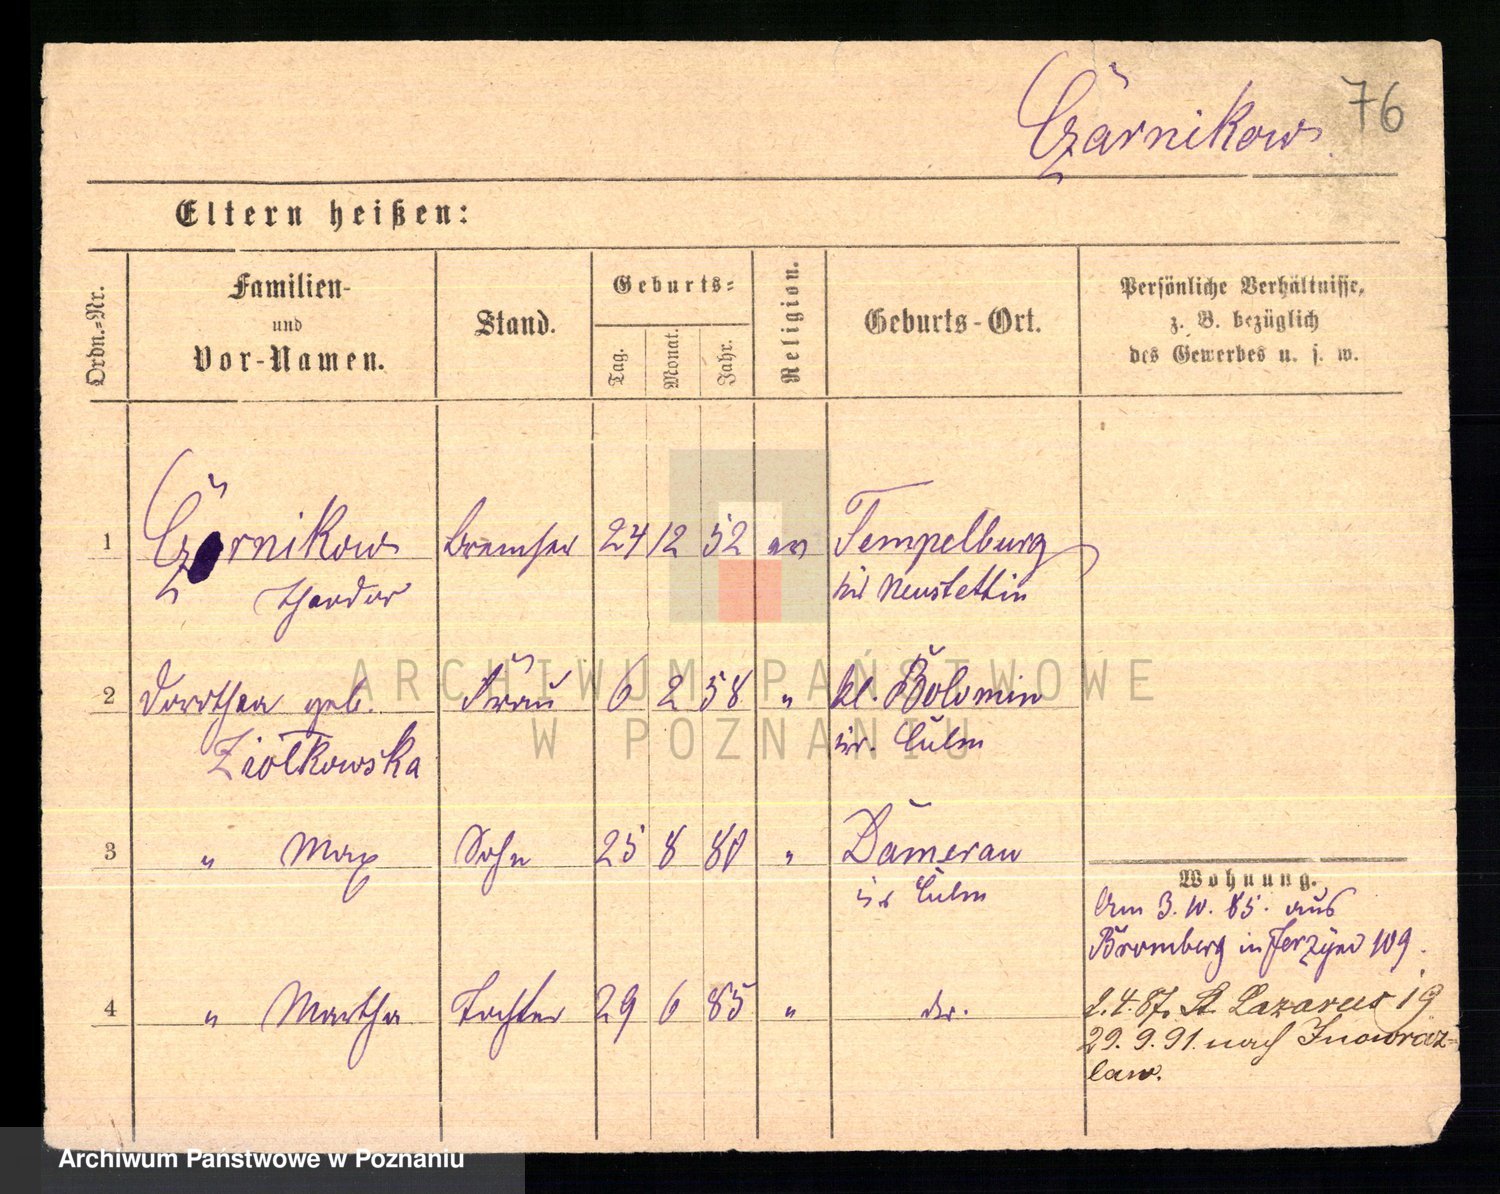 Czarnikow
76
Eltern heißen:
Ordn.-Nr.
Familien-
und
Vor-Namen.
Stand.
Geburts-
Tag.
Monat.
Jahr.
Religion.
Geburts-Ort.
Persönliche Verhältnisse,
z. B. bezüglich
des Gewerbes u. s. w.
1 Czarnikow Bremser 24 12 52 ev Tempelburg
Theodor Neustettin
2 Dorothea geb. Frau 6 2 58 " kl. Bolomin
Ziolkowska Culm
3 " Max Sohn 25 8 80 " Damerau
Culm
Wohnung.
Am 3. 10. 85. aus
Bromberg in Jerzyce 109.
4 " Martha Tochter 29 6 85 "
2.4.87. St. Lazarus 19
29. 9. 91. nach Inowraz-
law.
ARCHIWUM PAŃSTWOWE
W POZNANIU
Archiwum Państwowe w Poznaniu